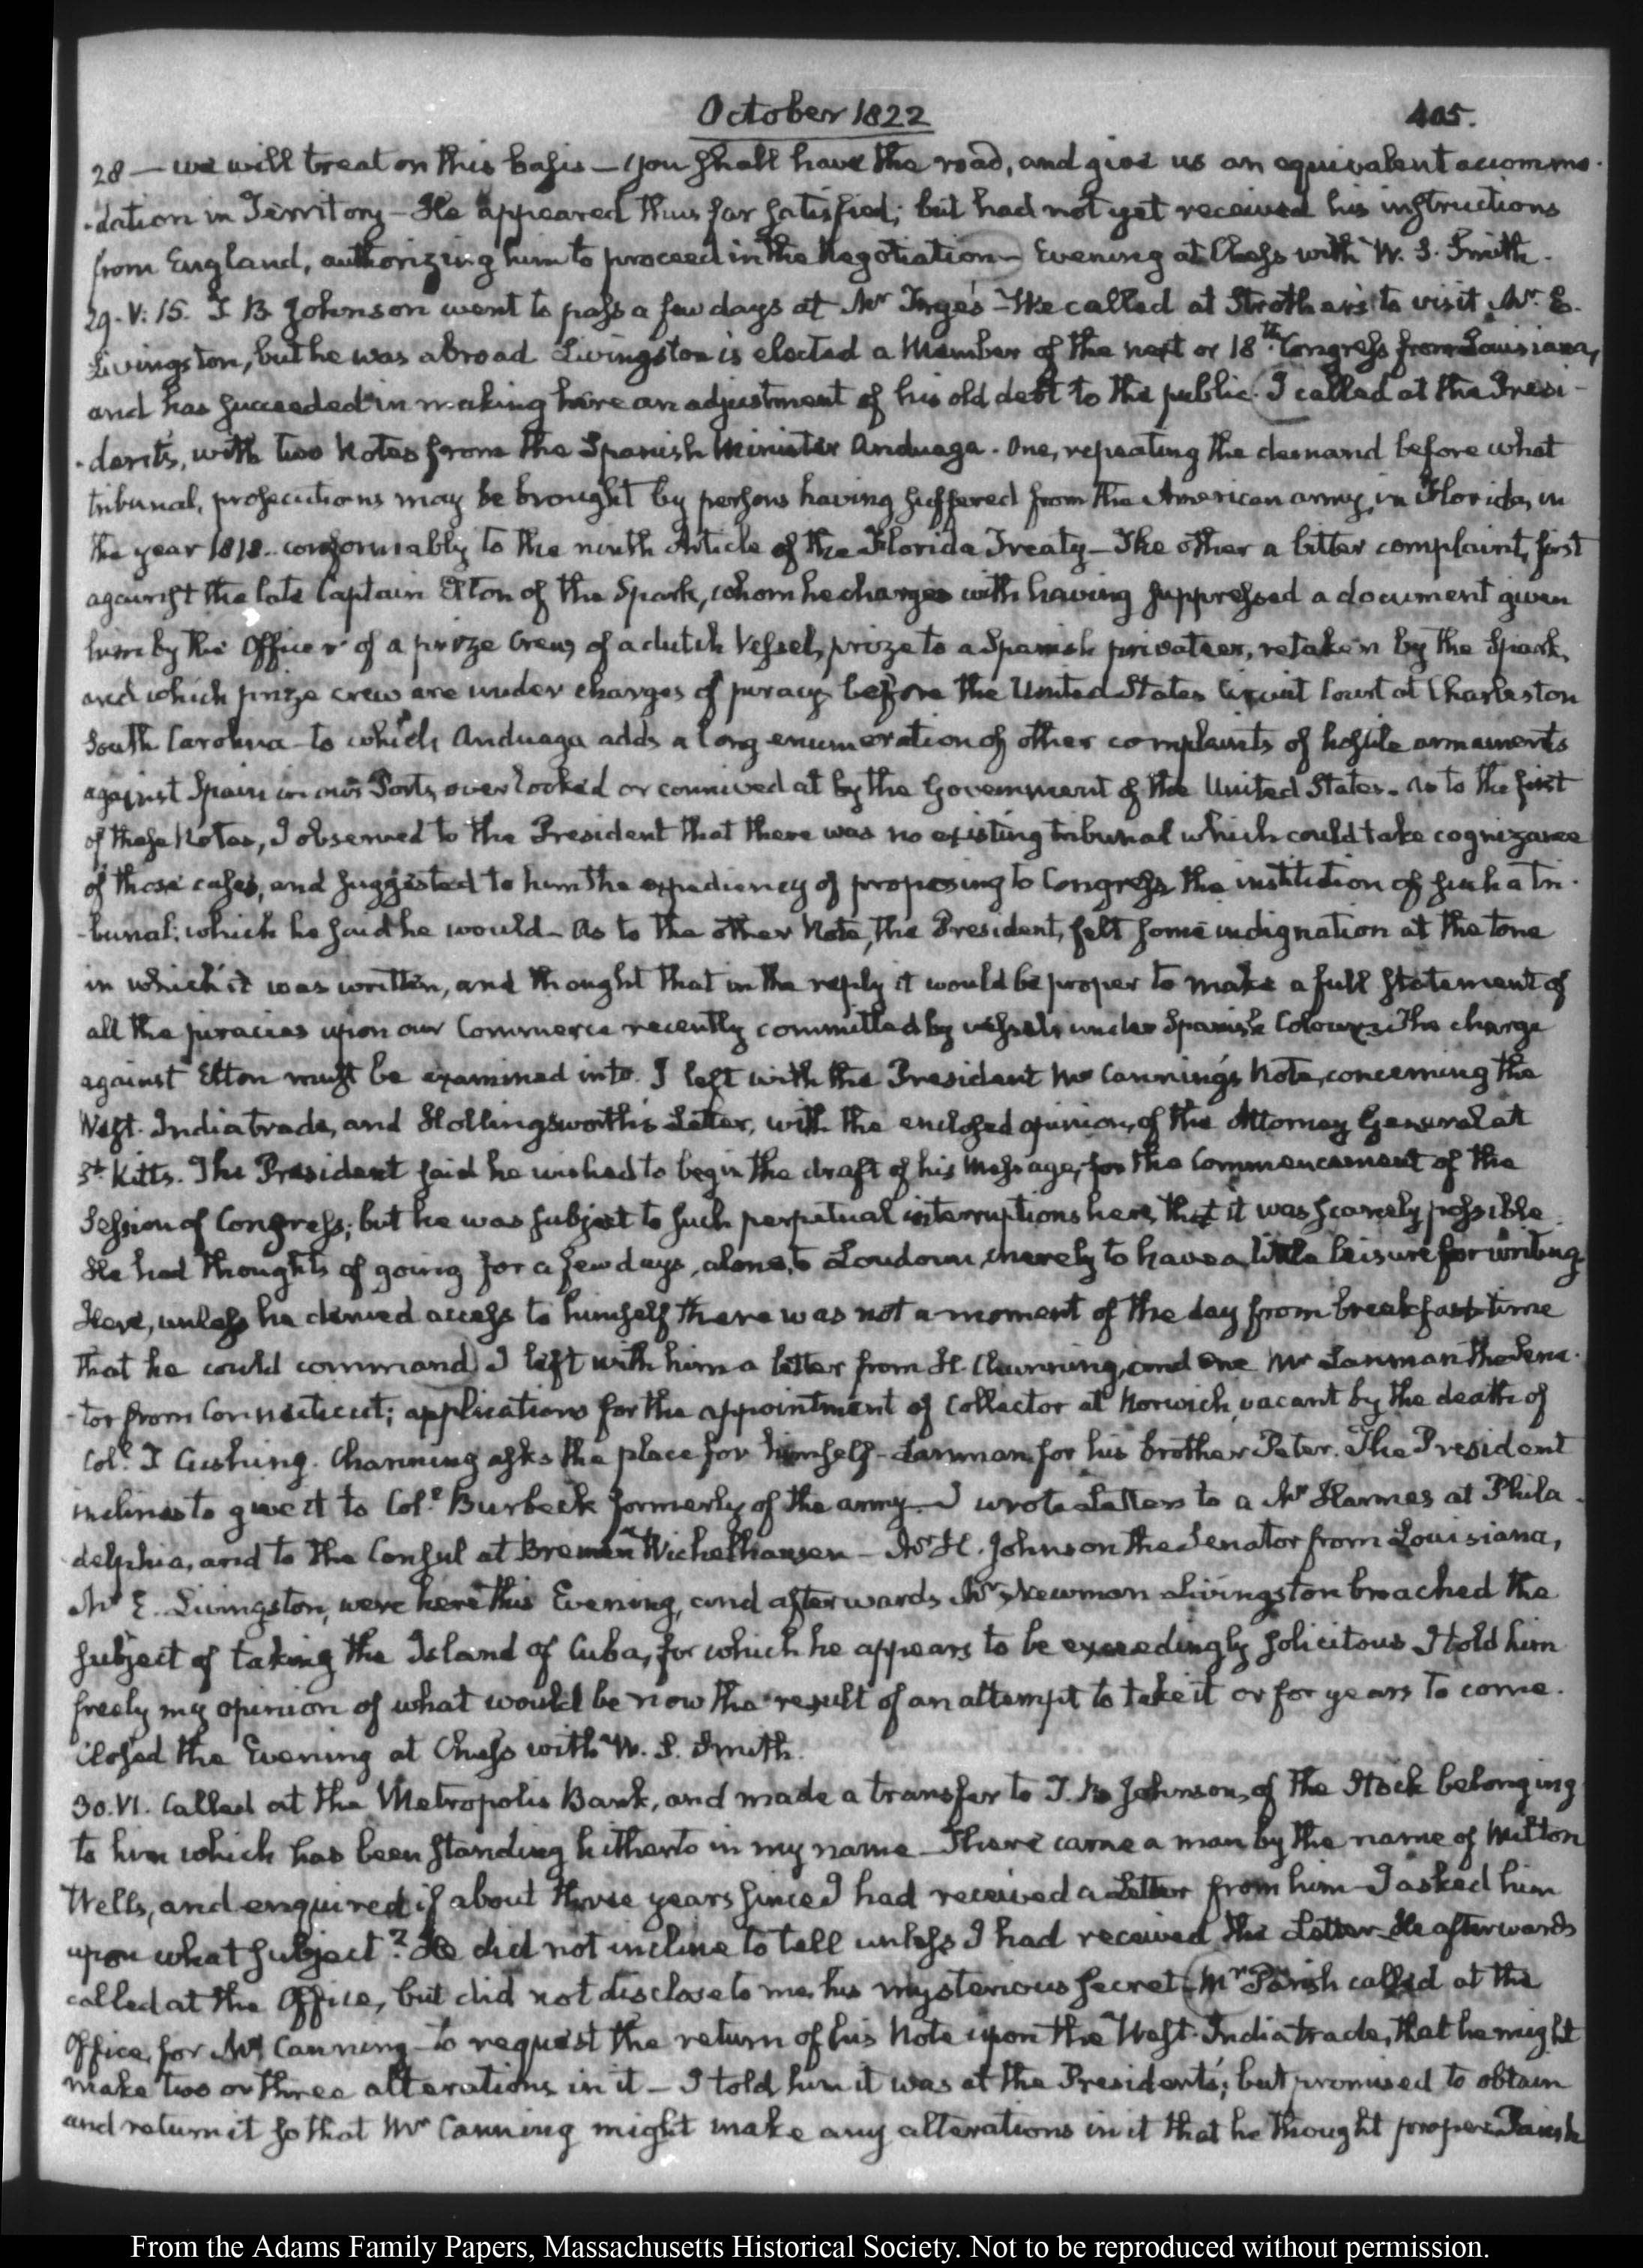 October 1822
405.
28 — we will treat on this basis — you shall have the road, and give us an equivalent accommo-
-dation in Territory — He appeared thus far satisfied; but had not yet received his instructions
from England, authorizing him to proceed in the Negotiation — Evening at Chess with W. S. Smith.
29. V: 15. T B Johnson went to pass a few days at Mr — We called at Strother's to visit Mr. E.
Livingston, but he was abroad Livingston is elected a Member of the next or 18th Congress from Louisiana,
and has succeeded in making here an adjustment of his old debt to the public. I called at the Presi-
-dent's, with two Notes from the Spanish Minister Anduaga. One, repeating the demand before what
tribunal, prosecutions may be brought by persons having suffered from the American army, in Florida, in
the year 1818. conformably to the ninth Article of the Florida Treaty — The other a bitter complaint, first
against the late Captain Elton of the Spark, whom he charges with having suppressed a document given
him by the Officer of a prize Crew, of a dutch Vessel, prize to a Spanish privateer, retaken by the Spark,
and which prize crew are under charges of piracy before the United States Circuit Court at Charleston
South Carolina — to which Anduaga adds a long enumeration of other complaints of hostile armaments
against Spain in our Ports, overlooked or connived at by the Government of the United States. As to the first
of these Notes, I observed to the President that there was no existing tribunal which could take cognizance
of those cases, and suggested to him the expediency of proposing to Congress the institution of such a tri-
-bunal; which he said he would — As to the other Note, the President, felt some indignation at the tone
in which it was written, and thought that in the reply it would be proper to make a full statement of
all the piracies upon our Commerce recently committed by vessels under Spanish Colours — The charge
against Elton must be examined into. I left with the President Mr Canning's Note, concerning the
West-India trade, and Hollingsworth's Letter, with the enclosed opinion, of the Attorney General at
St. Kitts. The President said he wished to begin the draft of his Message, for the Commencement of the
Session of Congress; but he was subject to such perpetual interruptions here, that it was scarcely possible.
He had thoughts of going for a few days, alone, to Loudoun, merely to have a little leisure for writing.
Here, unless he denied access to himself there was not a moment of the day from breakfast time
that he could command) I left with him a letter from H. Channing, and one Mr Lanman the Sena-
-tor from Connecticut; applications for the appointment of Collector at Norwich, vacant by the death of
Coll. T Cushing. Channing asks the place for himself — Lanman, for his brother Peter. The President
inclines to give it to Coll. Burbeck formerly of the army — I wrote Letters to a Mr Harmes at Phila-
delphia, and to the Consul at Bremen Wichelhausen — Mr H. Johnson the Senator from Louisiana,
Mr E. Livingston, were here this Evening, and afterwards Mr Newman Livingston broached the
subject of taking the Island of Cuba, for which he appears to be exceedingly solicitous I told him
freely my opinion of what would be now the result of an attempt to take it or for years to come.
Closed the Evening at Chess with W. S. Smith.
30. VI. Called at the Metropolis Bank, and made a transfer to T. B. Johnson, of the Stock belonging
to him which has been standing hitherto in my name — There came a man by the name of Milton
Wells, and enquired if about three years since I had received a Letter from him — I asked him
upon what subject? He did not incline to tell unless I had received the Letter — He afterwards
called at the Office, but did not disclose to me, his mysterious secret — (Mr Parish called at the
Office, for Mr Canning — to request the return of his Note upon the West-India trade, that he might
make two or three alterations in it — I told him it was at the President's; but promised to obtain
and return it so that Mr Canning might make any alterations in it that he thought proper. Parish
From the Adams Family Papers, Massachusetts Historical Society. Not to be reproduced without permission.